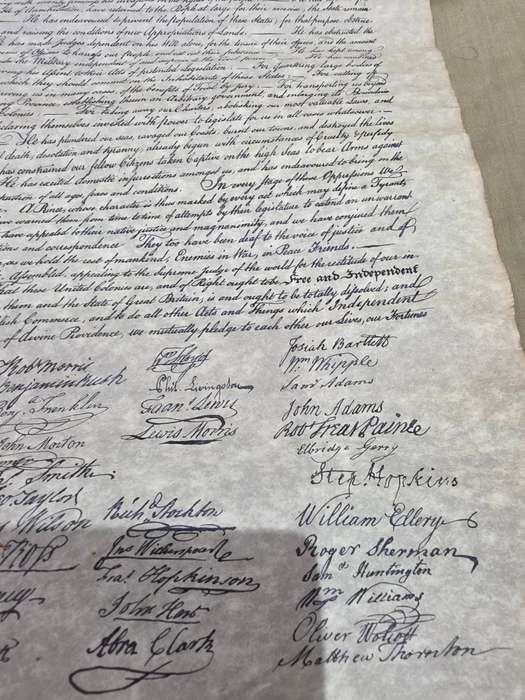 He has endeavoured to prevent the population of these States; for that purpose obstruc-
and raising the conditions of new Appropriations of Lands. — He has obstructed the
has made Judges dependent on his Will alone, for the tenure of their offices, and the amount
of Officers to harrass our people,
the Military independent of and
his Assent to their Acts of pretended Legislation: — For quartering large bodies of
which they should commit on the Inhabitants of these States: — For cutting off
in many cases, of the benefits of Trial by jury: — For transporting us beyond
Province, establishing therein an Arbitrary government, and enlarging its Boundaries
Colonies: — For taking away our Charters, abolishing our most valuable Laws, and
declaring themselves invested with power to legislate for us in all cases whatsoever. —
He has plundered our seas, ravaged our Coasts, burnt our towns, and destroyed the lives
death, desolation and tyranny, already begun with circumstances of Cruelty & perfidy
has constrained our fellow Citizens taken Captive on the high Seas to bear Arms against
He has excited domestic insurrections amongst us, and has endeavoured to bring on the
of all ages, sexes and conditions. In every stage of these Oppressions We
A Prince, whose character is thus marked by every act which may define a Tyrant,
warned them from time to time of attempts by their legislature to extend an unwarrant
have appealed to their native justice and magnanimity, and we have conjured them
and correspondence. They too have been deaf to the voice of justice and of
as we hold the rest of mankind, Enemies in War, in Peace Friends. —
Assembled, appealing to the Supreme Judge of the world for the rectitude of our in-
that these United Colonies are, and of Right ought to be Free and Independent
them and the State of Great Britain, is and ought to be totally dissolved; and
Commerce, and to do all other Acts and Things which Independent
of divine Providence, we mutually pledge to each other our Lives, our Fortunes
Robt Morris
Benjamin Rush
Franklin
John Morton
Smith
Taylor
Wilson
Ross
Wm Floyd
Phil. Livingston
Lewis
Lewis Morris
Richd Stockton
Jno Witherspoon
Fras Hopkinson
John Hart
Abra Clark
Josiah Bartlett
Wm Whipple
Saml Adams
John Adams
Robt Treat Paine
Elbridge Gerry
Step. Hopkins
William Ellery
Roger Sherman
Saml Huntington
Wm Williams
Oliver Wolcott
Matthew Thornton